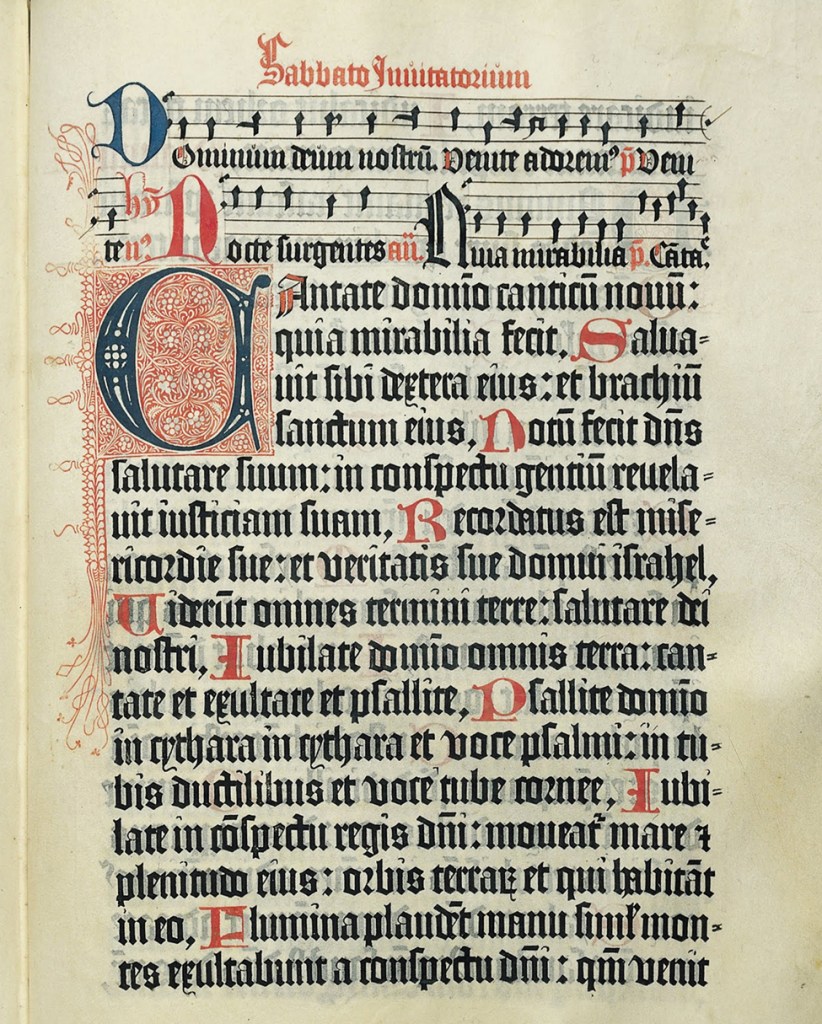 Sabbato Inuitatorium
Dominum deum nostrū. Venite adorem⁹ p̄ Veni
te n̄⁹. hȳ Nocte surgentes añ. Quia mirabilia p̄. Cāta.
CAntate domīo canticū nouū:
quia mirabilia fecit. Salua⸗
uit sibi dextera eius: et brachiū
sanctum eius. Notū fecit dn̄s
salutare suum: in conspectu gentiū reuela⸗
uit iusticiam suam. Recordatus est mise⸗
ricordie sue: et veritatis sue domui israhel.
Uiderūt omnes termini terre: salutare dei
nostri. Iubilate domīo omnis terra: can⸗
tate et exultate et psallite. Psallite domīo
in cythara in cythara et voce psalmi: in tu⸗
bis ductilibus et voce tube cornee. Iubi⸗
late in cōspectu regis dn̄i: moueat᷑ mare ⁊
plenitudo eius: orbis terraꝝ et qui habitāt
in eo. Flumina plaudēt manu siml̓ mon⸗
tes exultabunt a conspectu dn̄i: qm̄ venit